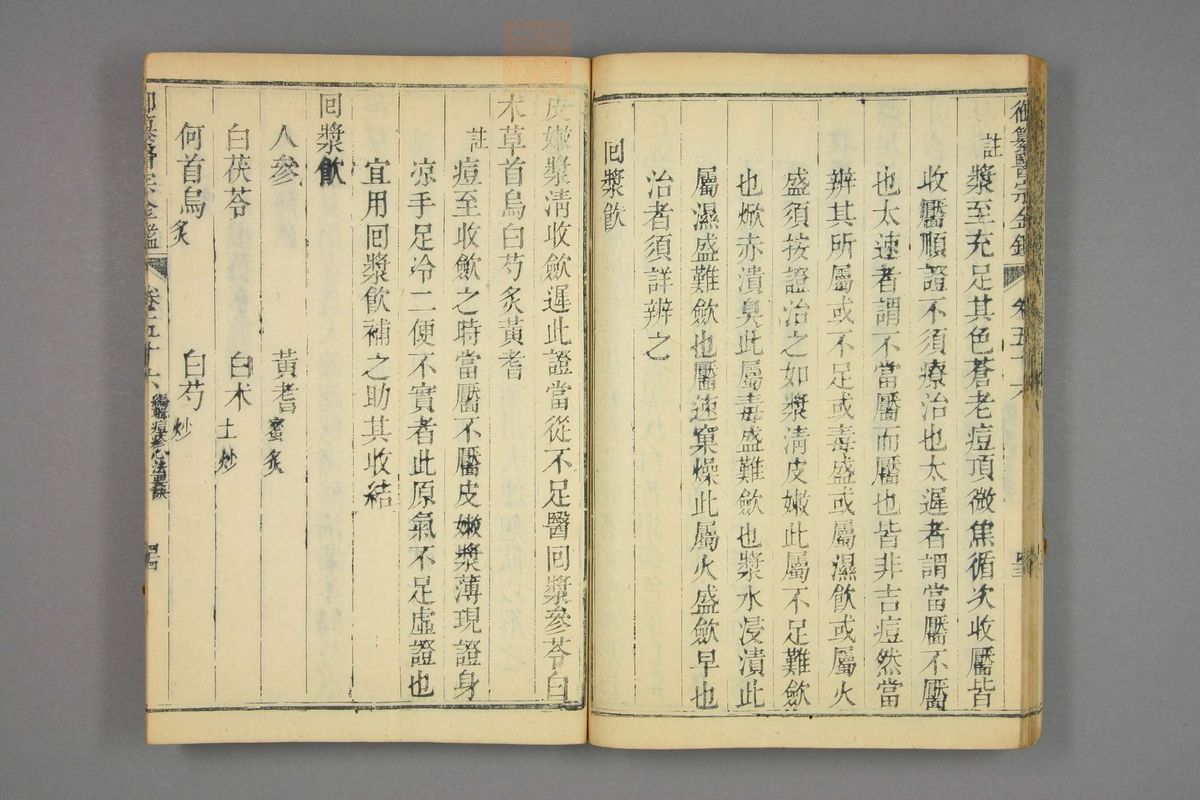 御纂醫宗金鑑 卷五十六
註漿至充足其色蒼老痘頂微焦循次收靨皆
收靨順證不須療治也太遲者謂當靨不靨
也太速者謂不當靨而靨也皆非吉痘然當
辨其所屬或不足或毒盛或屬濕飲或屬火
盛須按證治之如漿清皮嫩此屬不足難斂
也焮赤潰臭此屬毒盛難斂也漿水浸漬此
屬濕盛難斂也靨速窠燥此屬火盛斂早也
治者須詳辨之
回漿飲
皮嫩漿清收斂遲此證當從不足醫回漿參苓白
朮草首烏白芍炙黃耆
註痘至收斂之時當靨不靨皮嫩漿薄現證身
凉手足冷二便不實者此原氣不足虛證也
宜用回漿飲補之助其收結
回漿飲
人參 黃耆蜜炙
白茯苓 白朮土炒
何首烏炙 白芍炒
御纂醫宗金鑑 卷五十六 編輯痘疹心法要訣